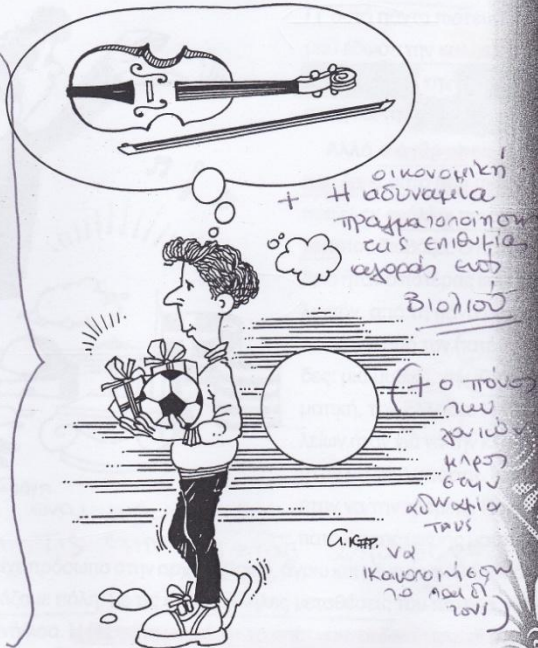 οικονομική
+ Η αδυναμία
πραγματοποίησης
της επιθυμίας
αγοράς ενός
βιολιού
(+ ο πόνος
των
γονιών
μπρος
στην
αδυναμία
τους
να
ικανοποιήσουν
το παιδί
τους)